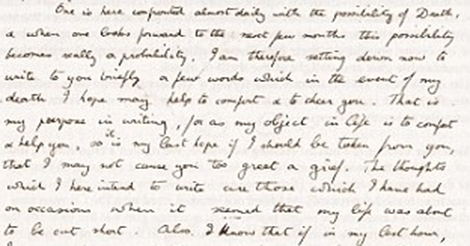 One is here confronted almost daily with the possibility of Death,
& when one looks forward to the next few months this possibility
becomes really a probability. I am therefore setting down now to
write to you briefly a few words which in the event of my
death I hope may help to comfort & to cheer you. That is
my purpose in writing, for as my object in life is to comfort
& help you, so it is my last hope if I should be taken from you,
that I may not cause you too great a grief. The thoughts
which I here intend to write are those which I have had
on occasions when it seemed that my life was about
to be cut short. Also I know that if in my last hour,